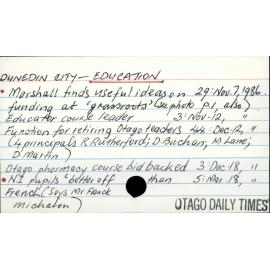 DUNEDIN CITY — EDUCATION
• Marshall finds useful ideas on 29: Nov. 7, 1986
funding at 'grassroots' (see photo p.1, also)
Educator course leader 3: Nov. 12, "
Function for retiring Otago teachers 44: Dec. 12, "
(4 principals R Rutherford; D Buchan; M Lane;
D Martin)
Otago pharmacy course bid backed 3: Dec. 18, "
• N.Z. pupils better off than 5: Mar. 18, "
French (Says Mr Franck
Micheton)
OTAGO DAILY TIMES